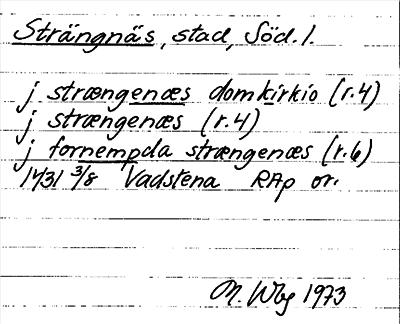 Strängnäs, stad, Söd. l.
j strængenæs domkirkio (r. 4)
j strængenæs (r. 4)
j fornempda strængenæs (r. 6)
1431 3/8 Vadstena RAp or.
M. Wbg 1973